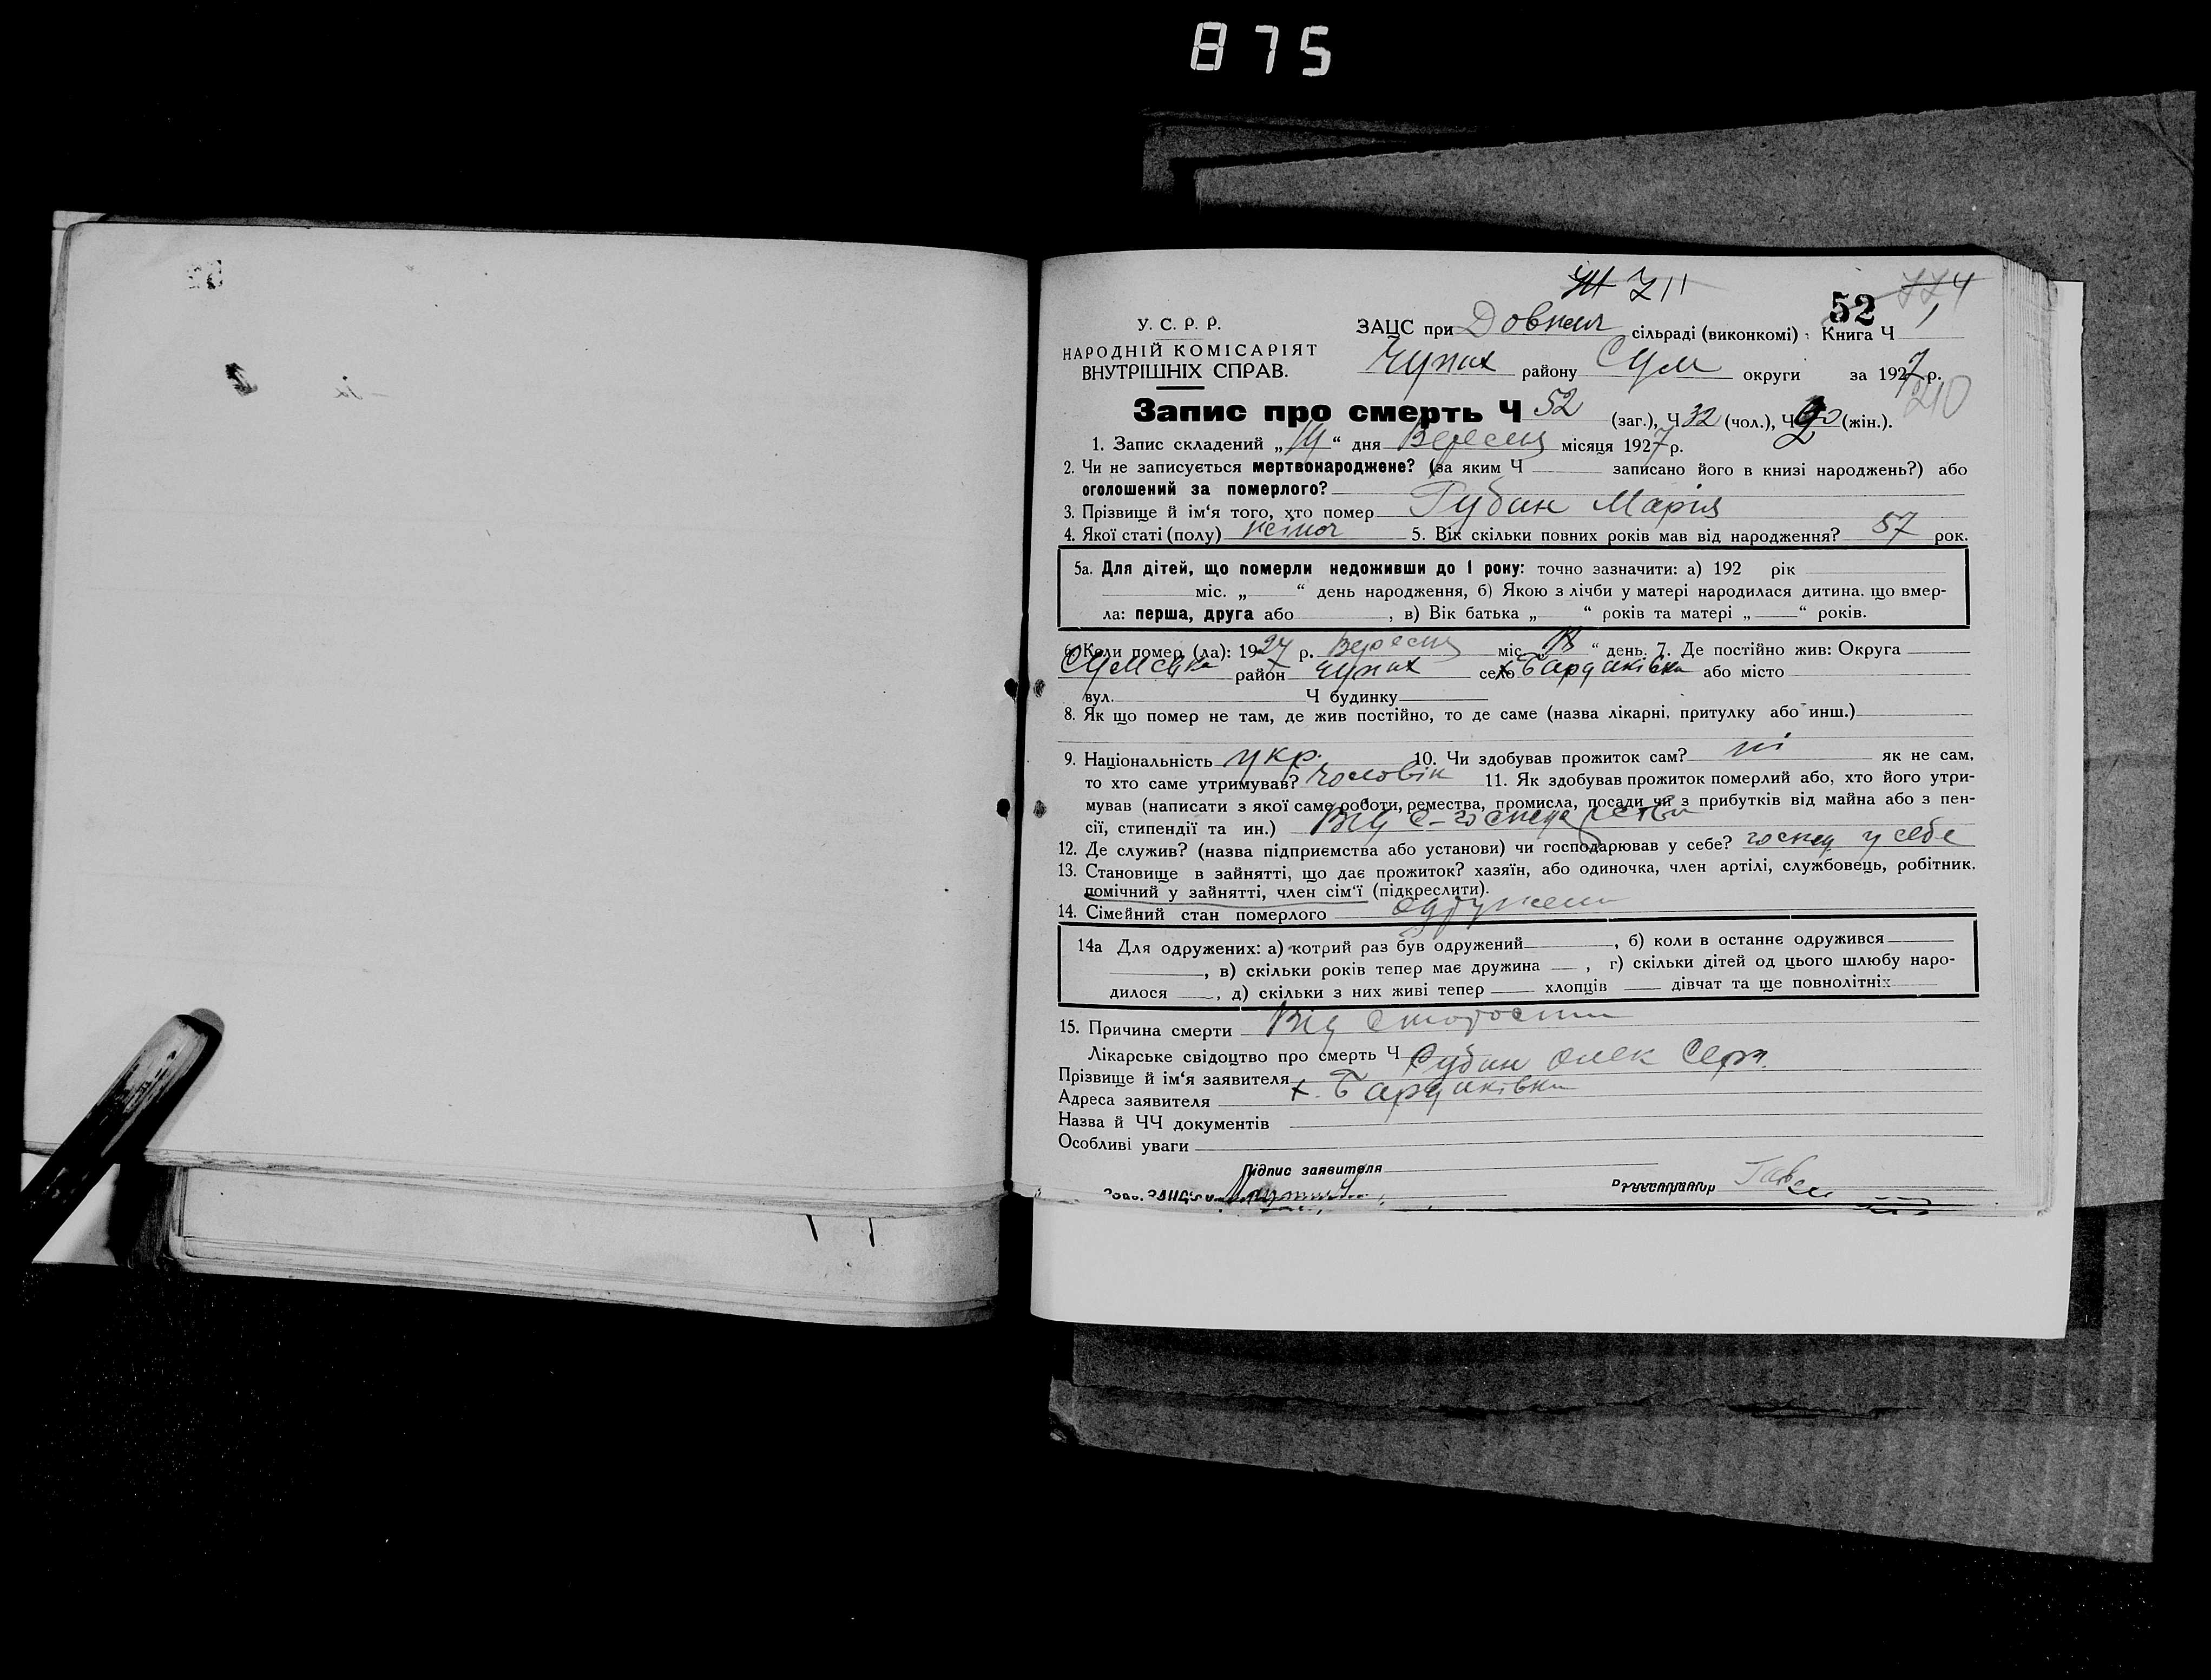 875
711
52
У. С. Р. Р.
ЗАЦС при Довжик сільраді (виконкомі) Книга Ч 1
НАРОДНІЙ КОМІСАРІЯТ
ВНУТРІШНІХ СПРАВ.
Чупах району Сум округи за 1927 р.
210
Запис про смерть Ч 52 (заг.), Ч 32 (чол.), Ч 20 (жін.).
1. Запис складений „ “ дня Вересня місяця 1927 р.
2. Чи не записується мертвонароджене? (за яким Ч записано його в книзі народжень?) або
оголошений за померлого?
3. Прізвище й ім‘я того, хто помер Губин Марія
4. Якої статі (полу) жіноч 5. Вік скільки повних років мав від народження? 57 рок.
5а. Для дітей, що померли недоживши до 1 року: точно зазначити: а) 192 рік
міс. „ “ день народження, б) Якою з лічби у матері народилася дитина. що вмер-
ла: перша, друга або , в) Вік батька „ “ років та матері „ “ років.
6. Коли помер (ла): 1927 р. Вересня міс. „ “ день. 7. Де постійно жив: Округа
Сумська район Чупах село х Бардаківка або місто
вул. Ч будинку
8. Як що помер не там, де жив постійно, то де саме (назва лікарні, притулку або инш.)
9. Національність укр. 10. Чи здобував прожиток сам? ні як не сам,
то хто саме утримував? чоловік 11. Як здобував прожиток померлий або, хто його утри-
мував (написати з якої саме роботи, ремества, промисла, посади чи з прибутків від майна або з пен-
сії, стипендії та ин.) Від с-господарства
12. Де служив? (назва підприємства або установи) чи господарював у себе? госпед у себе
13. Становище в зайнятті, що дає прожиток? хазяїн, або одиночка, член артілі, службовець, робітник.
помічний у зайнятті, член сім‘ї (підкреслити).
14. Сімейний стан померлого одружени
14а Для одружених: а) котрий раз був одружений , б) коли в останнє одружився
, в) скільки років тепер має дружина , г) скільки дітей од цього шлюбу наро-
дилося , д) скільки з них живі тепер хлопців дівчат та ще повнолітніх
15. Причина смерти Від старости
Лікарське свідоцтво про смерть Ч
Прізвище й ім‘я заявителя Губин Олек Серг.
Адреса заявителя х. Бардаківка
Назва й ЧЧ документів
Особливі уваги
Підпис заявителя
Зав. ЗАЦС‘у Реєстратор